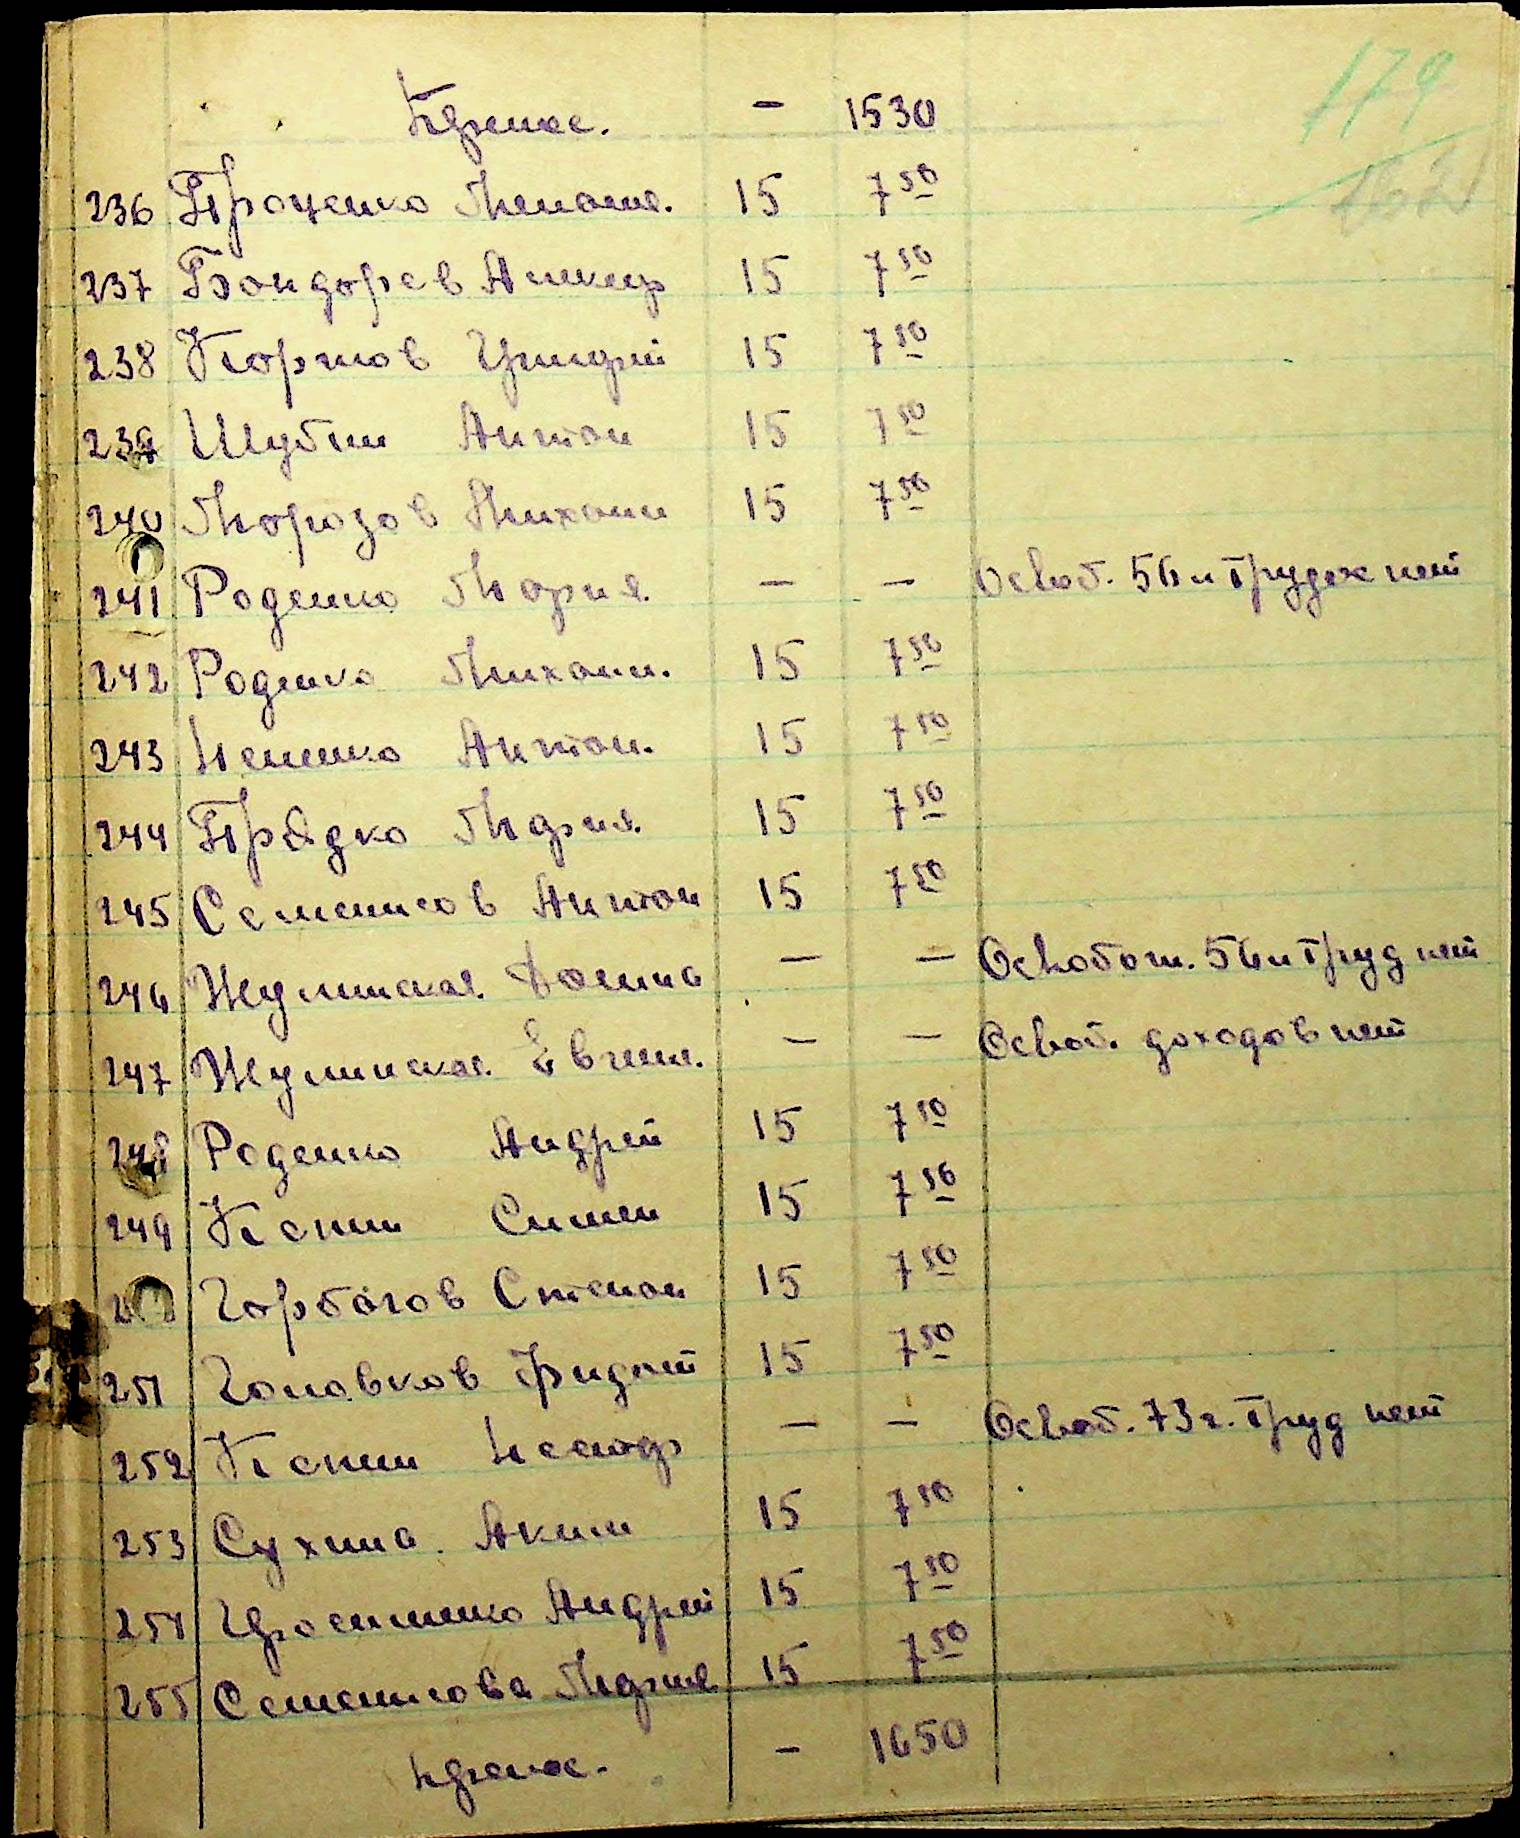 179
Перенос. - 1530
236 Проценко Меланья. 15 7 50
237 Бондарев 15 7 50
238 Карпов Андрей 15 7 50
239 Шубин Антон 15 7 50
240 Морозов Михаил 15 7 50
241 Роденко Мария. - - Освоб. 56 л трудсп нет
242 Роденко Михаил. 15 7 50
243 Антон. 15 7 50
244 Прядко Мария. 15 7 50
245 Семенисов Антон 15 7 50
246 Жулинская - - Освобож. 56 л труд нет
247 Жулинская Евгени. - - Освоб. доходов нет
248 Роденко Андрей 15 7 50
249 Кенин 15 7 50
Горбатов Степан 15 7 50
251 Головков Фидот 15 7 50
252 Кенин - - Освоб. 73 г. труд нет
253 Сухина Аким 15 7 50
254 Андрей 15 7 50
255 Семенисова Мария 15 7 50
Перенос. - 1650